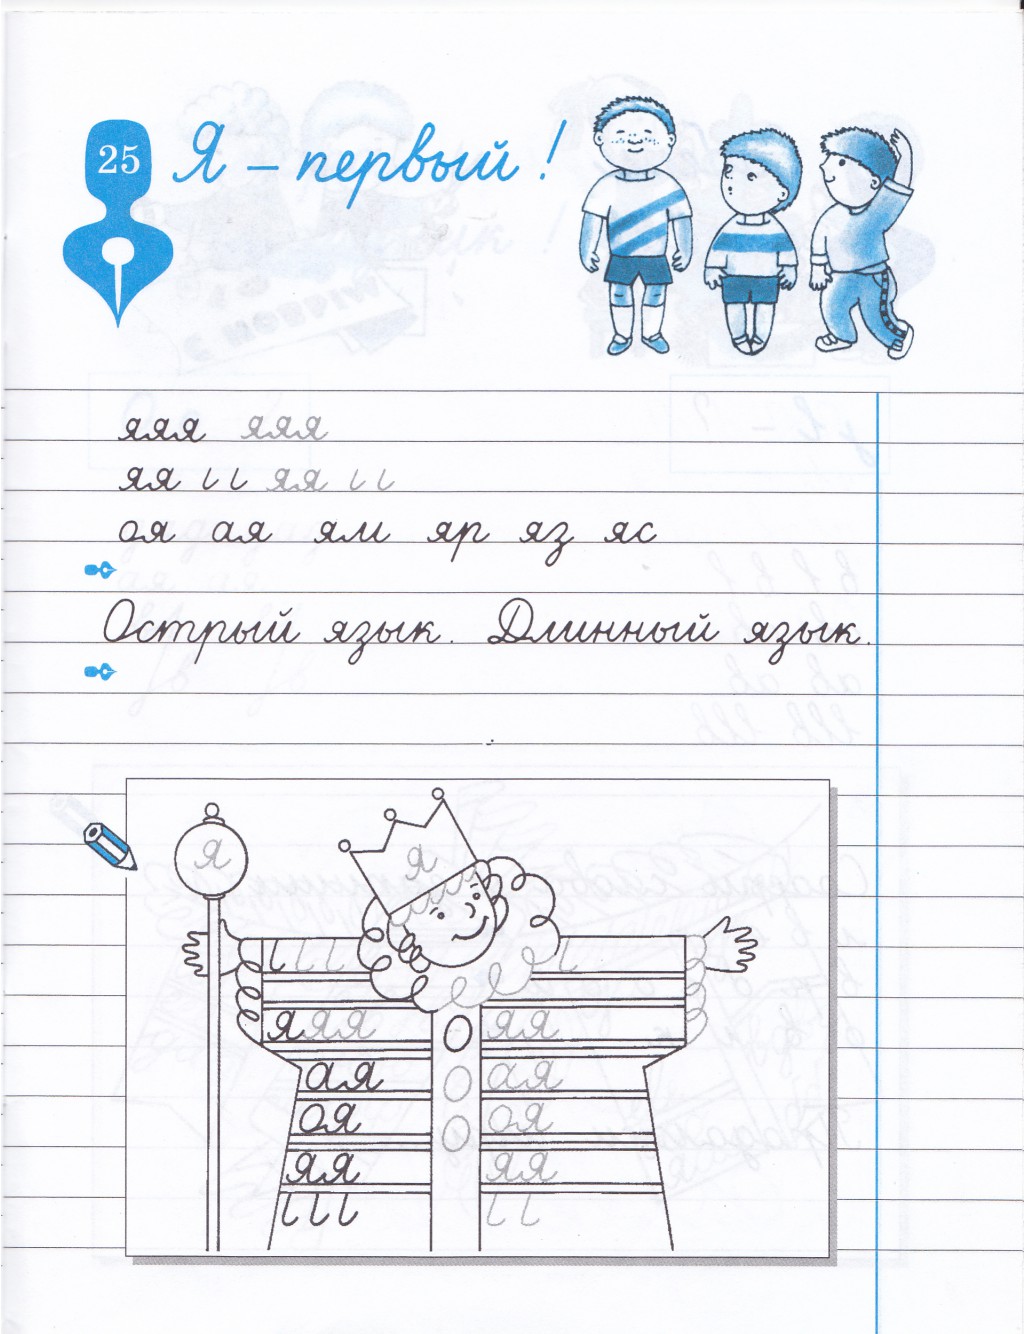 25
Я – первый!
яяя яяя
яя ι ι яя ι ι
оя ая ям яр яз яс
Острый язык. Длинный язык.
я я
ι ι ι ι
я я я я я
ая ая
оя оя
яя яя
ι ι ι ι ι